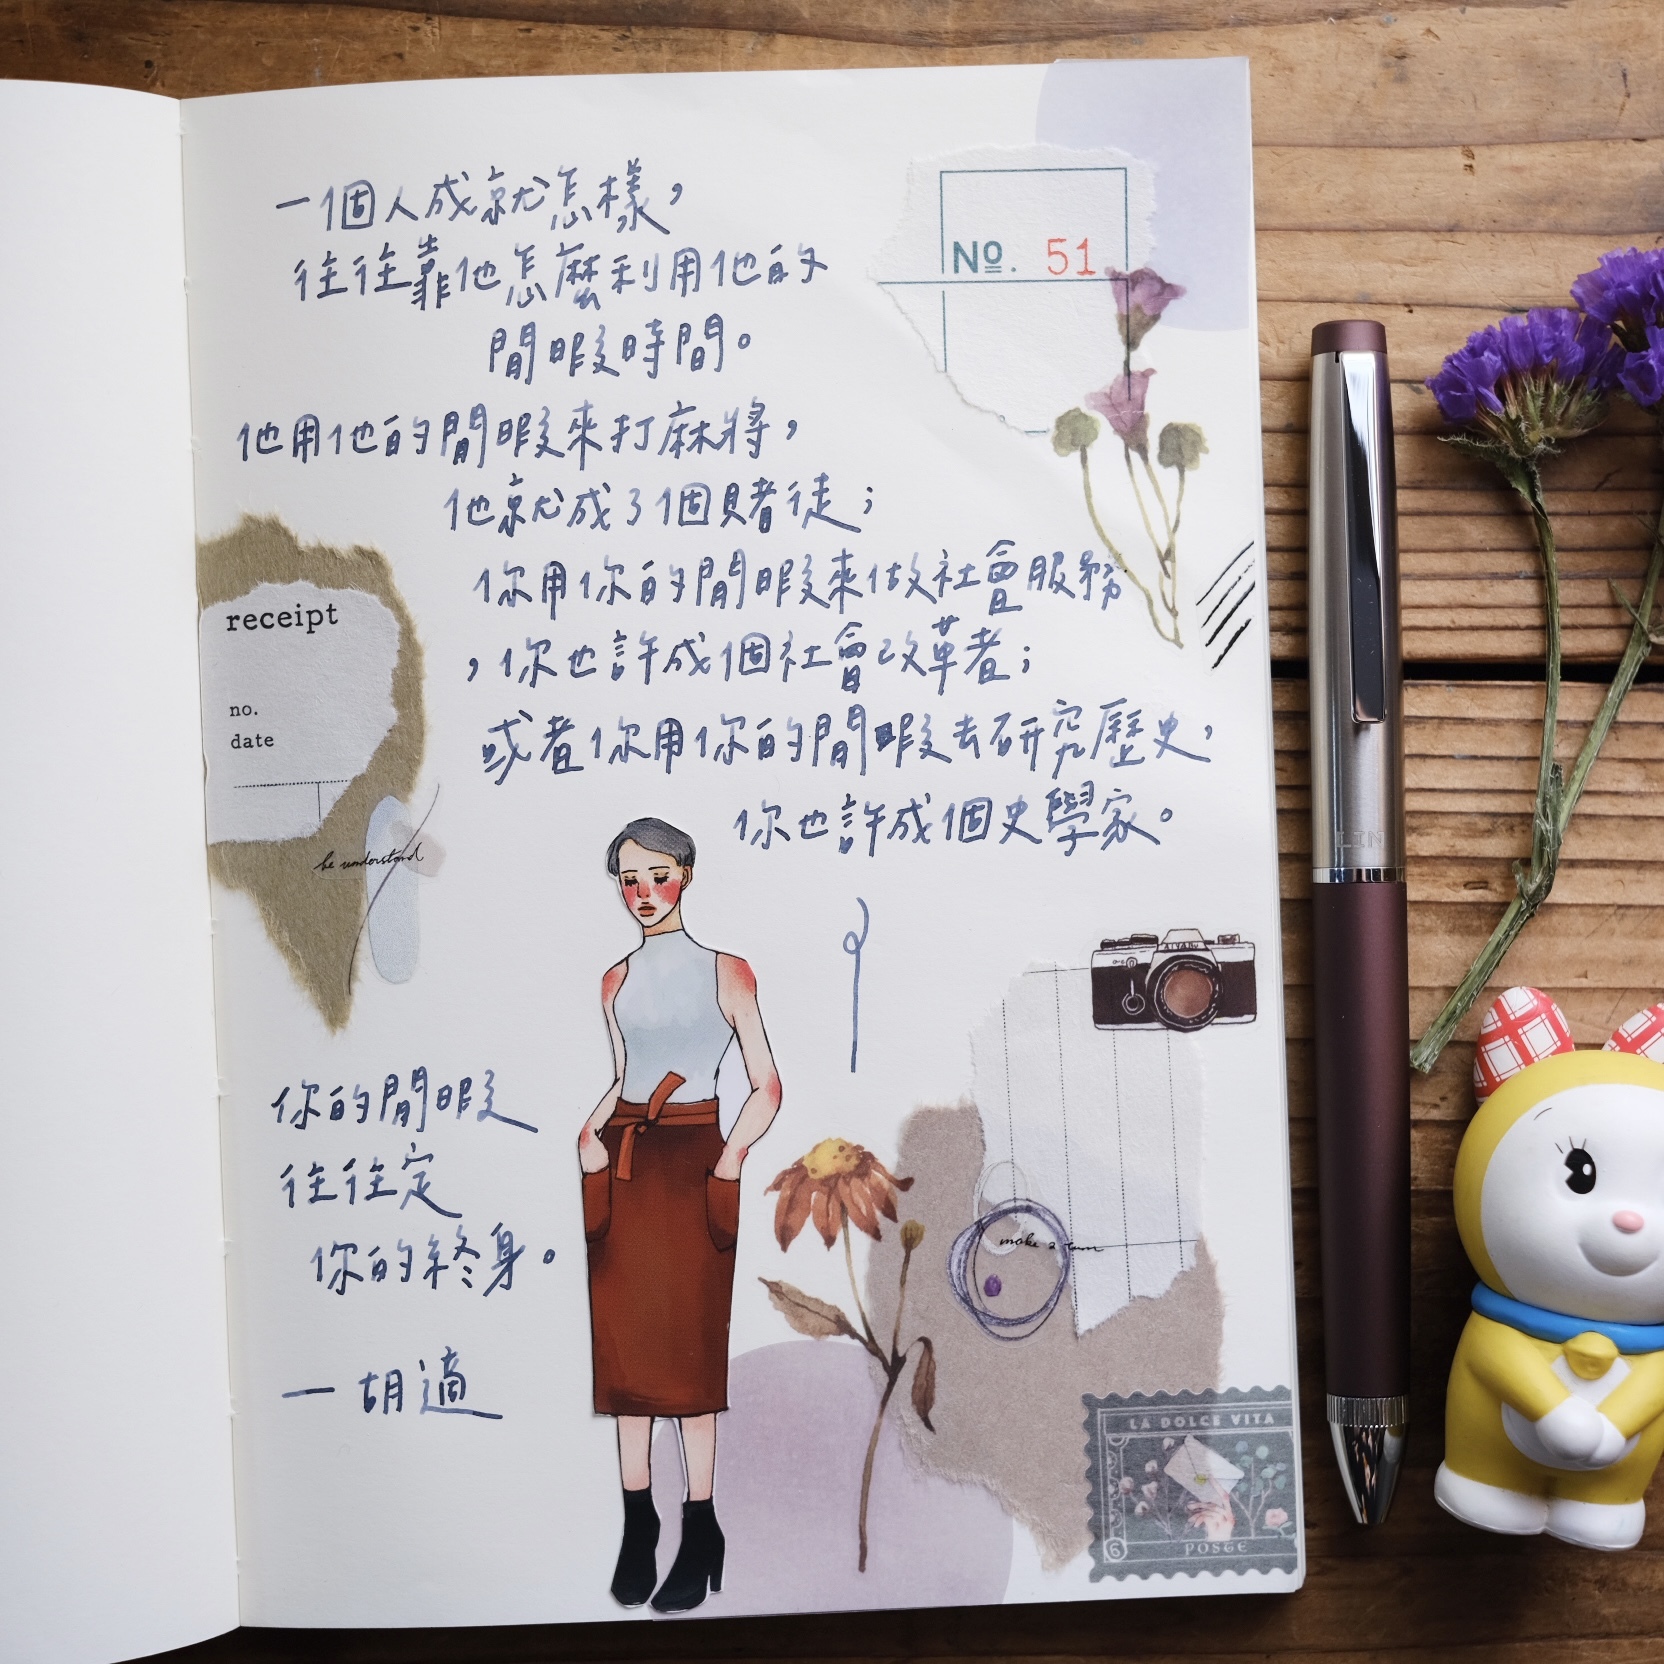 一個人成就怎樣，
往往靠他怎麼利用他的
閒暇時間。
他用他的閒暇來打麻將，
他就成了個賭徒；
你用你的閒暇來做社會服務
，你也許成個社會改革者；
或者你用你的閒暇去研究歷史，
你也許成個史學家。
你的閒暇
往往定
你的終身。
一 胡適
No. 51
receipt
no.
date
be understand
make a turn
LA DOLCE VITA
6
POSTE
LIN